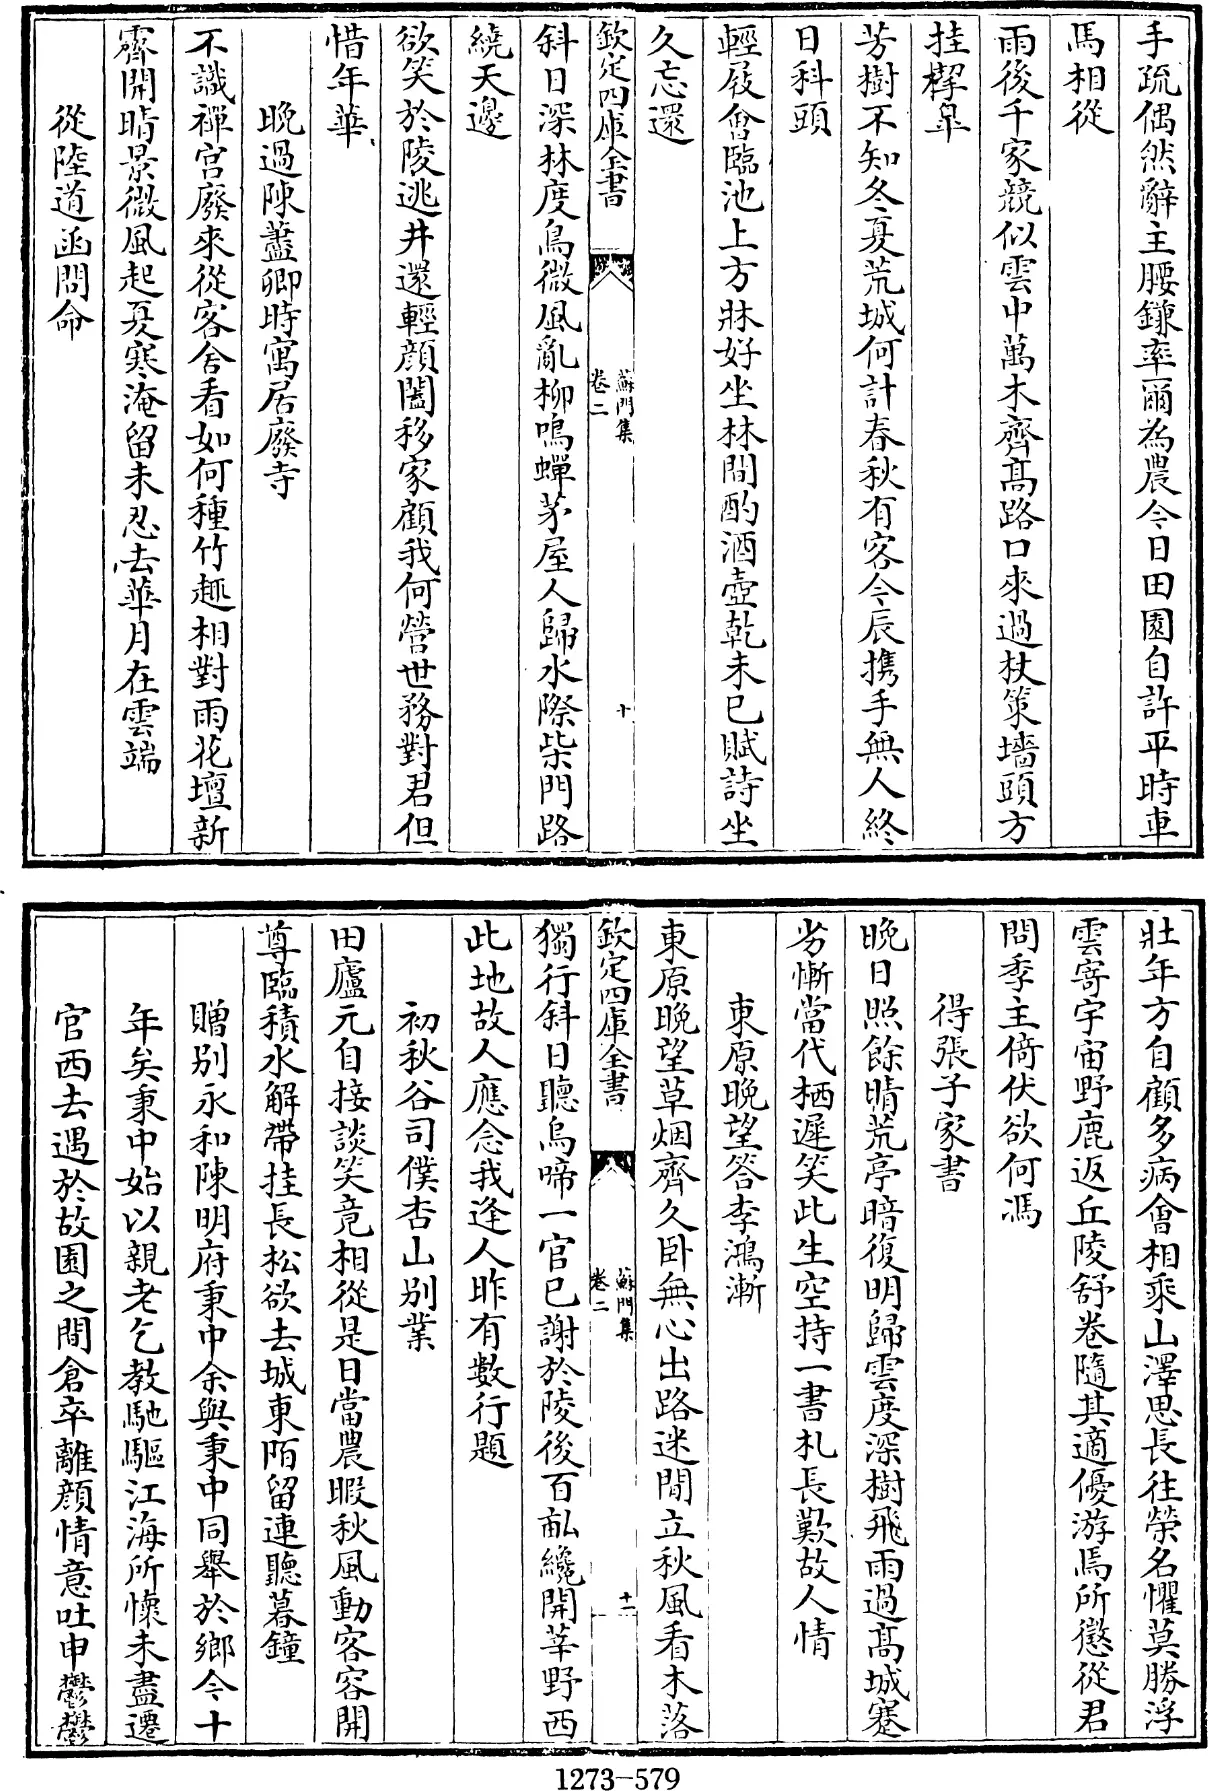 手疏偶然辭主腰鎌率爾為農今日田園自許平時車
馬相從
雨後千家競似雲中萬木齊髙路口來過杖策墻頭方
挂桿皐
芳樹不知冬夏荒城何計春秋有客今辰携手無人終
日科頭
輕屐會臨池上方牀好坐林間酌酒壺乾未已賦詩坐
久忘還
欽定四庫全書
蘇門集
卷二
十
斜日深林度鳥微風亂柳鳴蟬茅屋人歸水際柴門路
繞天邊
欲笑於陵逃井還輕顔闔移家顧我何營世務對君但
惜年華
晚過陳藎卿時寓居廢寺
不識禪宫廢來從客舍看如何種竹趣相對雨花壇新
霽開晴景微風起夏寒淹留未忍去華月在雲端
從陸道函問命
壯年方自顧多病會相乘山澤思長往榮名懼莫勝浮
雲寄宇宙野鹿返丘陵舒卷隨其適優游焉所懲從君
問季主倚伏欲何馮
得張子家書
晚日照餘晴荒亭暗復明歸雲度深樹飛雨過髙城蹇
劣慚當代栖遲笑此生空持一書札長歎故人情
東原晚望答李鴻漸
東原晚望草烟齊久卧無心出路迷閒立秋風看木落
欽定四庫全書
蘇門集
卷二
十一
獨行斜日聽烏啼一官已謝於陵後百畝纔開莘野西
此地故人應念我逢人昨有數行題
初秋谷司僕杏山别業
田廬元自接談笑竟相從是日當農暇秋風動客容開
尊臨積水解帶挂長松欲去城東陌留連聽暮鐘
贈别永和陳明府秉中余與秉中同舉於鄉今十
年矣秉中始以親老乞教馳驅江海所懷未盡遷
官西去遇於故園之間倉卒離顔情意吐申鬱鬱
1273-579